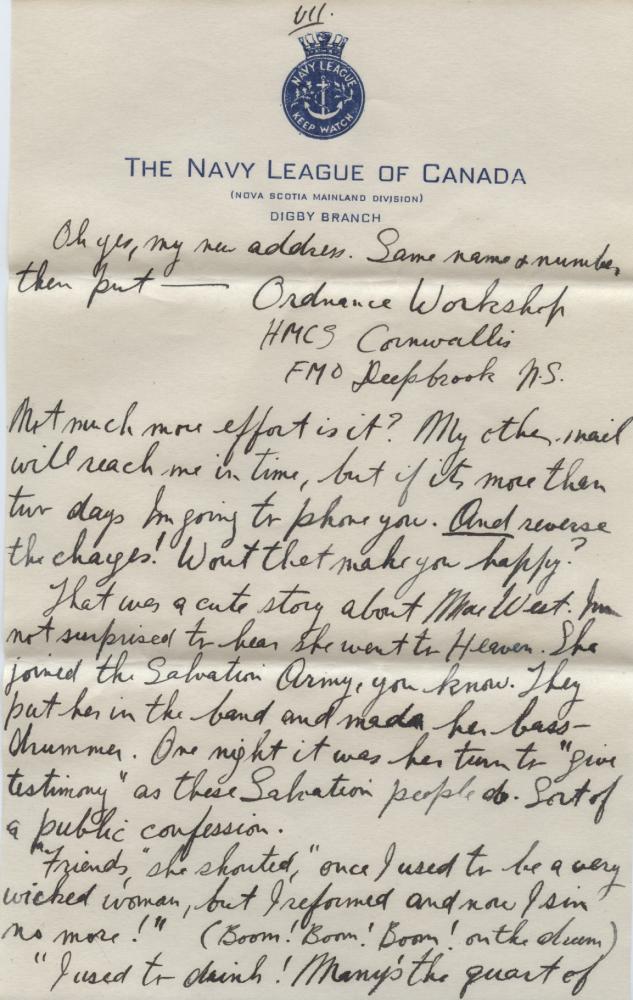 VII.
NAVY LEAGUE
KEEP WATCH
THE NAVY LEAGUE OF CANADA
(NOVA SCOTIA MAINLAND DIVISION)
DIGBY BRANCH
Oh yes, my new address. Same name & number,
then put — Ordnance Workshop
HMCS Cornwallis
FMO Deepbrook N.S.
Not much more effort is it? My other mail
will reach me in time, but if its more than
two days Im going to phone you. And reverse
the charges! Wont that make you happy?
That was a cute story about Mae West. Im
not surprised to hear she went to Heaven. She
joined the Salvation Army, you know. They
put her in the band and made her bass-
drummer. One night it was her turn to "give
testimony" as these Salvation people do. Sort of
a public confession.
"Friends," she shouted, "once I used to be a very
wicked woman, but I reformed and now I sin
no more!" (Boom! Boom! Boom! on the drum)
"I used to drink! Many's the quart of